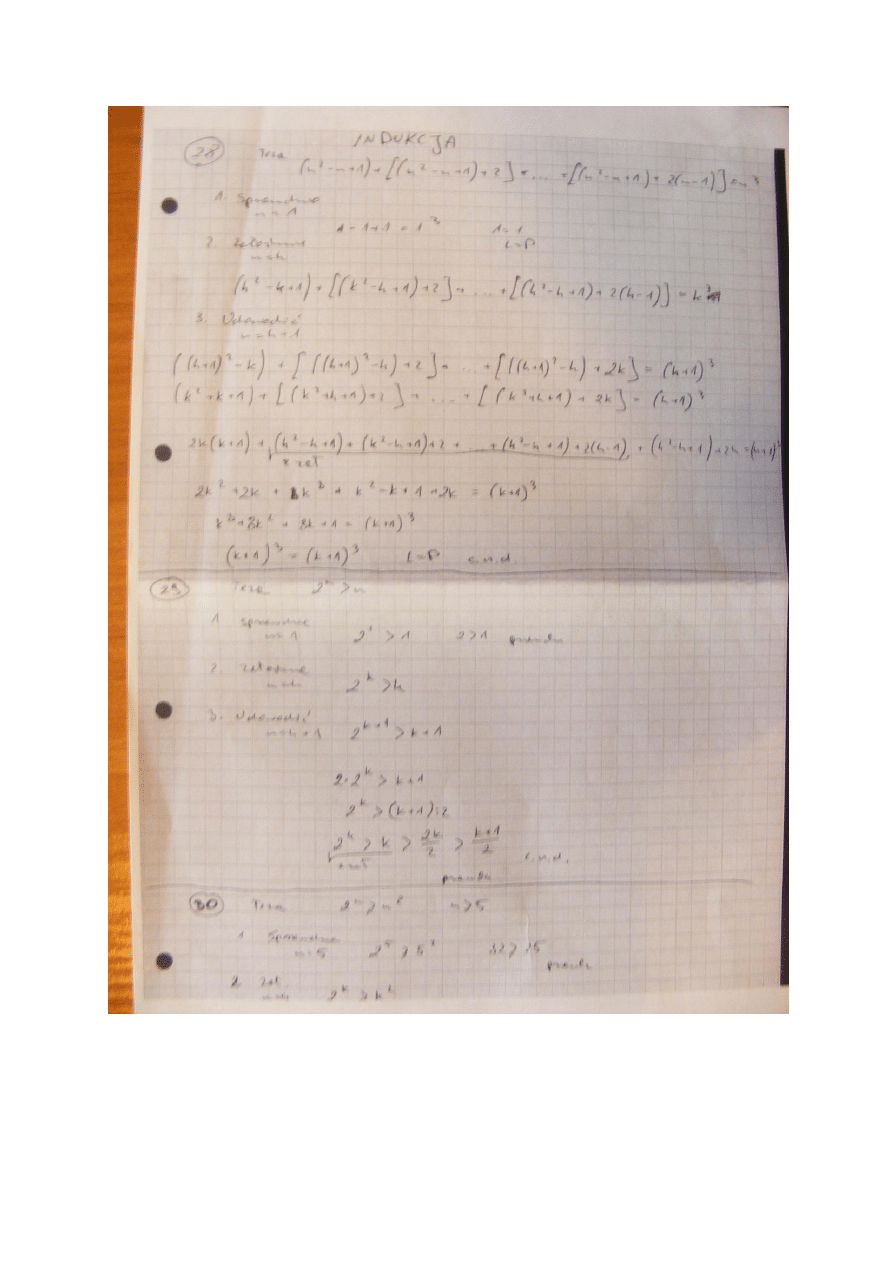 INDUKCJA
28 Teza
(n² - n + 1) + [(n² - n + 1) + 2] + ... + [(n² - n + 1) + 2(n - 1)] = n³
1. Sprawdzenie
n = 1
1 - 1 + 1 = 1³ 1 = 1
L = P
2. Założenie
n = k
(k² - k + 1) + [(k² - k + 1) + 2] + ... + [(k² - k + 1) + 2(k - 1)] = k³
3. Udowodnić
n = k + 1
((k+1)² - k) + [((k+1)² - k) + 2] + ... + [((k+1)² - k) + 2k] = (k+1)³
(k² + k + 1) + [(k² + k + 1) + 2] + ... + [(k² + k + 1) + 2k] = (k+1)³
2k(k+1) + (k² - k + 1) + (k² - k + 1) + 2 + ... + (k² - k + 1) + 2(k - 1) + (k² - k + 1) + 2k = (k+1)³
z zał
2k² + 2k + k³ + k² - k + 1 + 2k = (k+1)³
k³ + 3k² + 3k + 1 = (k+1)³
(k+1)³ = (k+1)³ L = P c.n.d.
29 Teza 2ⁿ > n
1 Sprawdzenie
n = 1 2¹ > 1 2 > 1 prawda
2. Założenie
n = k 2ᵏ > k
3. Udowodnić
n = k + 1 2ᵏ⁺¹ > k + 1
2·2ᵏ > k + 1
2ᵏ > (k+1):2
2ᵏ > k > 2k/2 > k+1/2 c.n.d.
z zał
prawda
30 Teza 2ⁿ > n² n ≥ 5
1 Sprawdzenie
n = 5 2⁵ > 5² 32 > 25
prawda
2 Zał
n = k 2ᵏ > k²